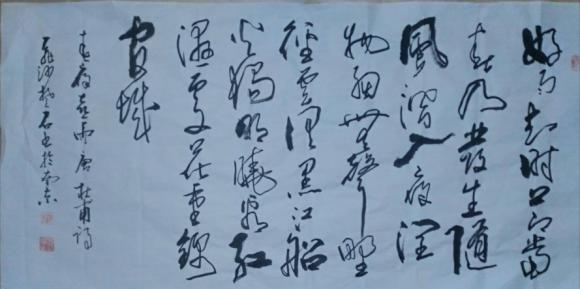 好雨知時節當
春乃發生隨
風潛入夜潤
物細無聲野
徑雲俱黑江船
火獨明曉看紅
濕處花重錦
官城
春夜喜雨唐杜甫詩
石書於南京